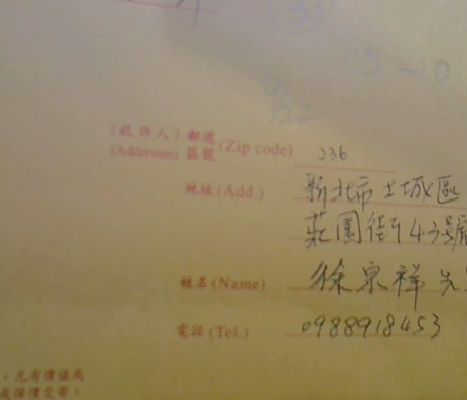 05-10
(收件人) 郵遞
(Addressee) 區號 (Zip code) 236
地址 (Add.) 新北市土城區
莊園街4號
姓名 (Name) 徐泉祥 先
電話 (Tel.) 0988918453
，凡有價值或